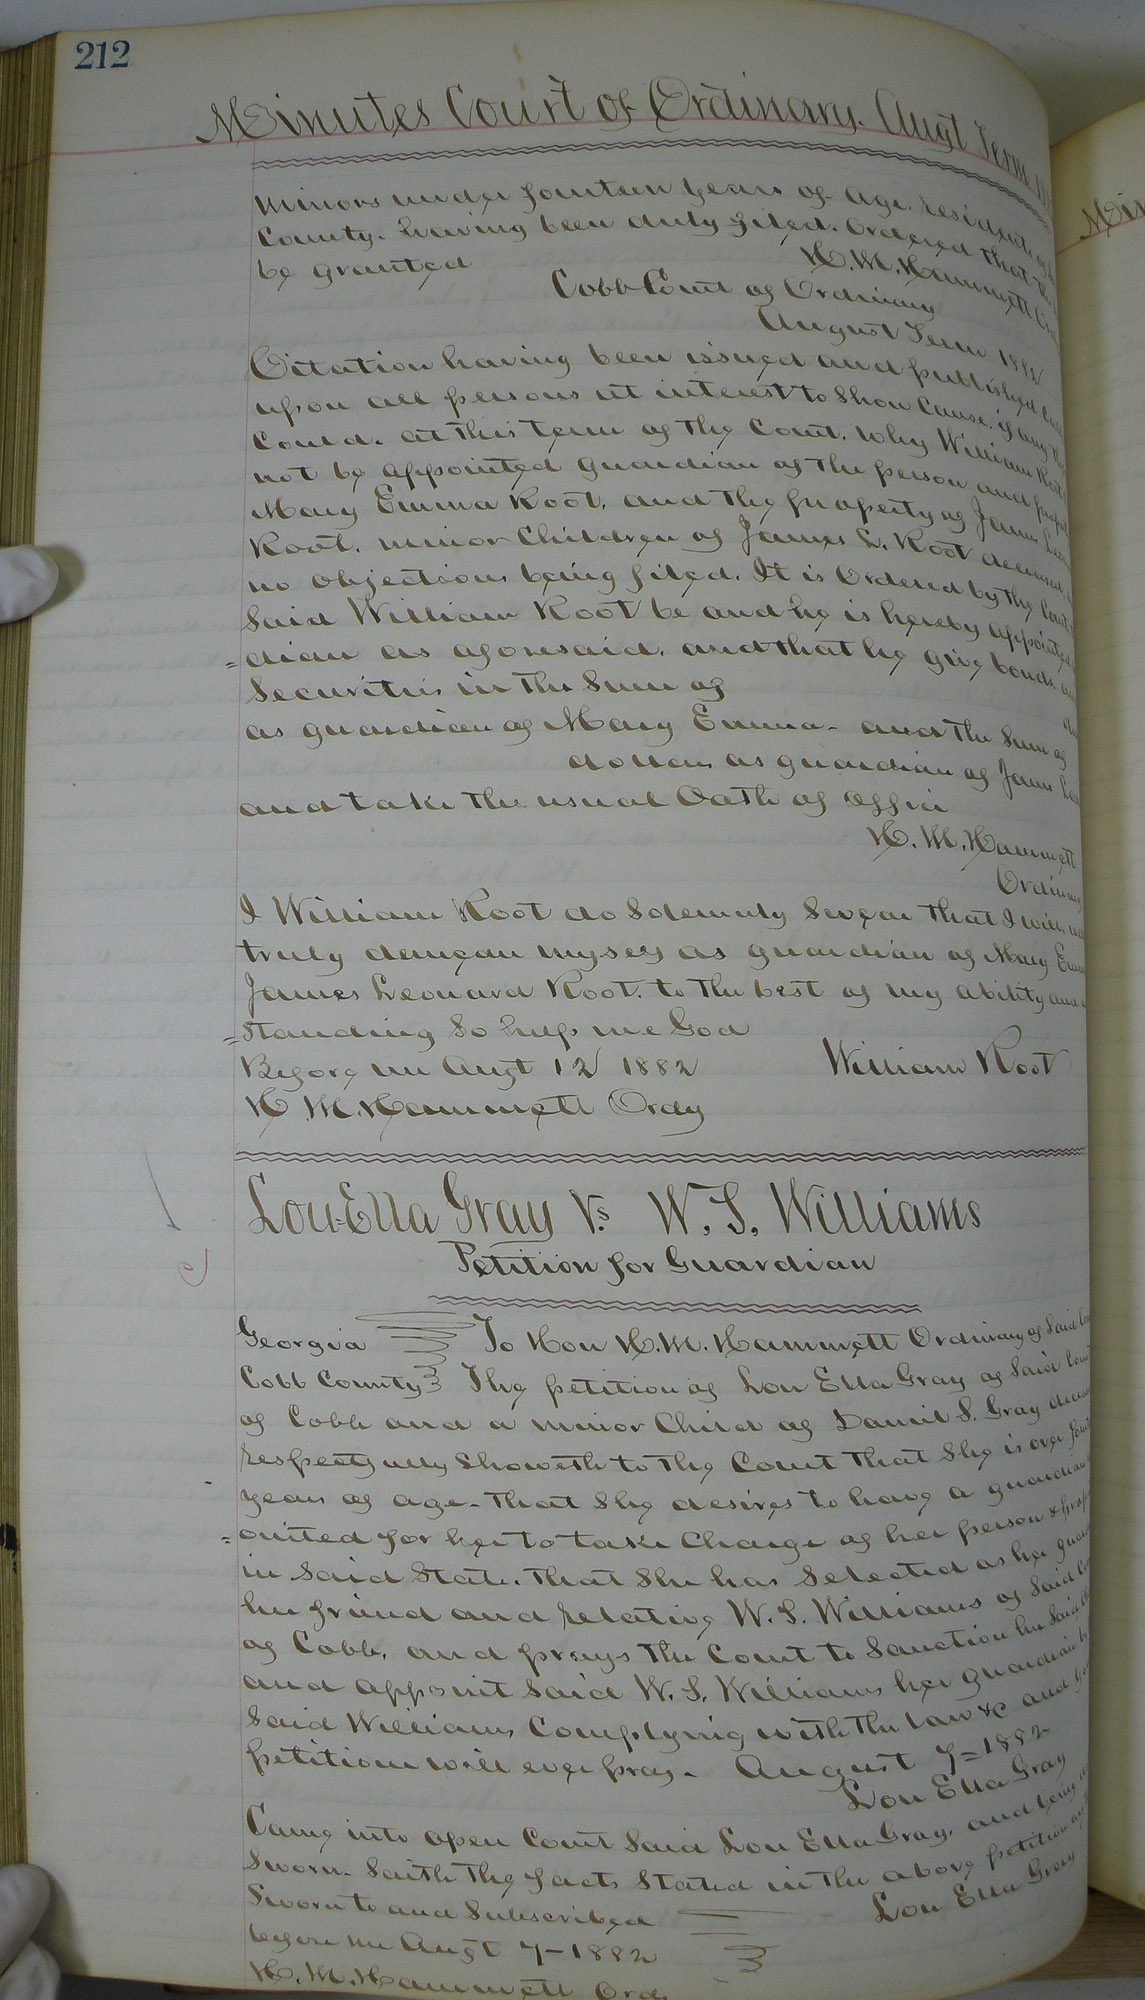 212
Minutes Court of Ordinary. Augt Term
Minors under fourteen years of age. residents of
County. having been duly filed. Ordered that the
be granted
H. M. Hammett
Cobb Court of Ordinary
August Term 1882
Citation having been issued and published
upon all persons at interest to Show Cause, if any they
Could. at this term of the Court. Why William Root
not be appointed guardian of the person and
Mary Emma Root. and the property of James
Root. minor Children of James L. Root deceased,
no objections being filed. It is Ordered by the Court
Said William Root be and he is hereby appointed
=dian as aforesaid. and that he give bonds.
Securities in the Sum of
as guardian of Mary Emma - and the Sum of
dollars as guardian of James
and take the usual Oath of office
H. M. Hammett
Ordinary
I William Root do Solemnly Swear that I will
truly demean myself as guardian of Mary
James Leonard Root. to the best of my ability and
=standing So help me God
Before me Augt 12 1882 William Root
H M. Hammett Ordy
Lou-Ella Gray Vs W. S. Williams
Petition for Guardian
Georgia To Hon H. M. Hammett Ordinary of Said
Cobb County The petition of Lou Ella Gray of Said
of Cobb and a minor Child of Daniel S. Gray
respectfully Showeth to the Court that She is over
years of age - that She desires to have a guardian
=ointed for her to take Charge of her person &
in Said State. that She has Selected as her
her friend and relative W. S. Williams of Said
of Cobb, and prays the Court to Sanction her Said
and appoint Said W. S. Williams her guardian
Said Williams Complying with the law &c and
petitioner will ever pray. August 7=1882
Lou Ella Gray
Came into open Court Said Lou Ella Gray, and being
Sworn. Saith the facts Stated in the above petition
Sworn to and Subscribed Lou Ella Gray
before me Augt 7-1882
H. M. Hammett Ordy